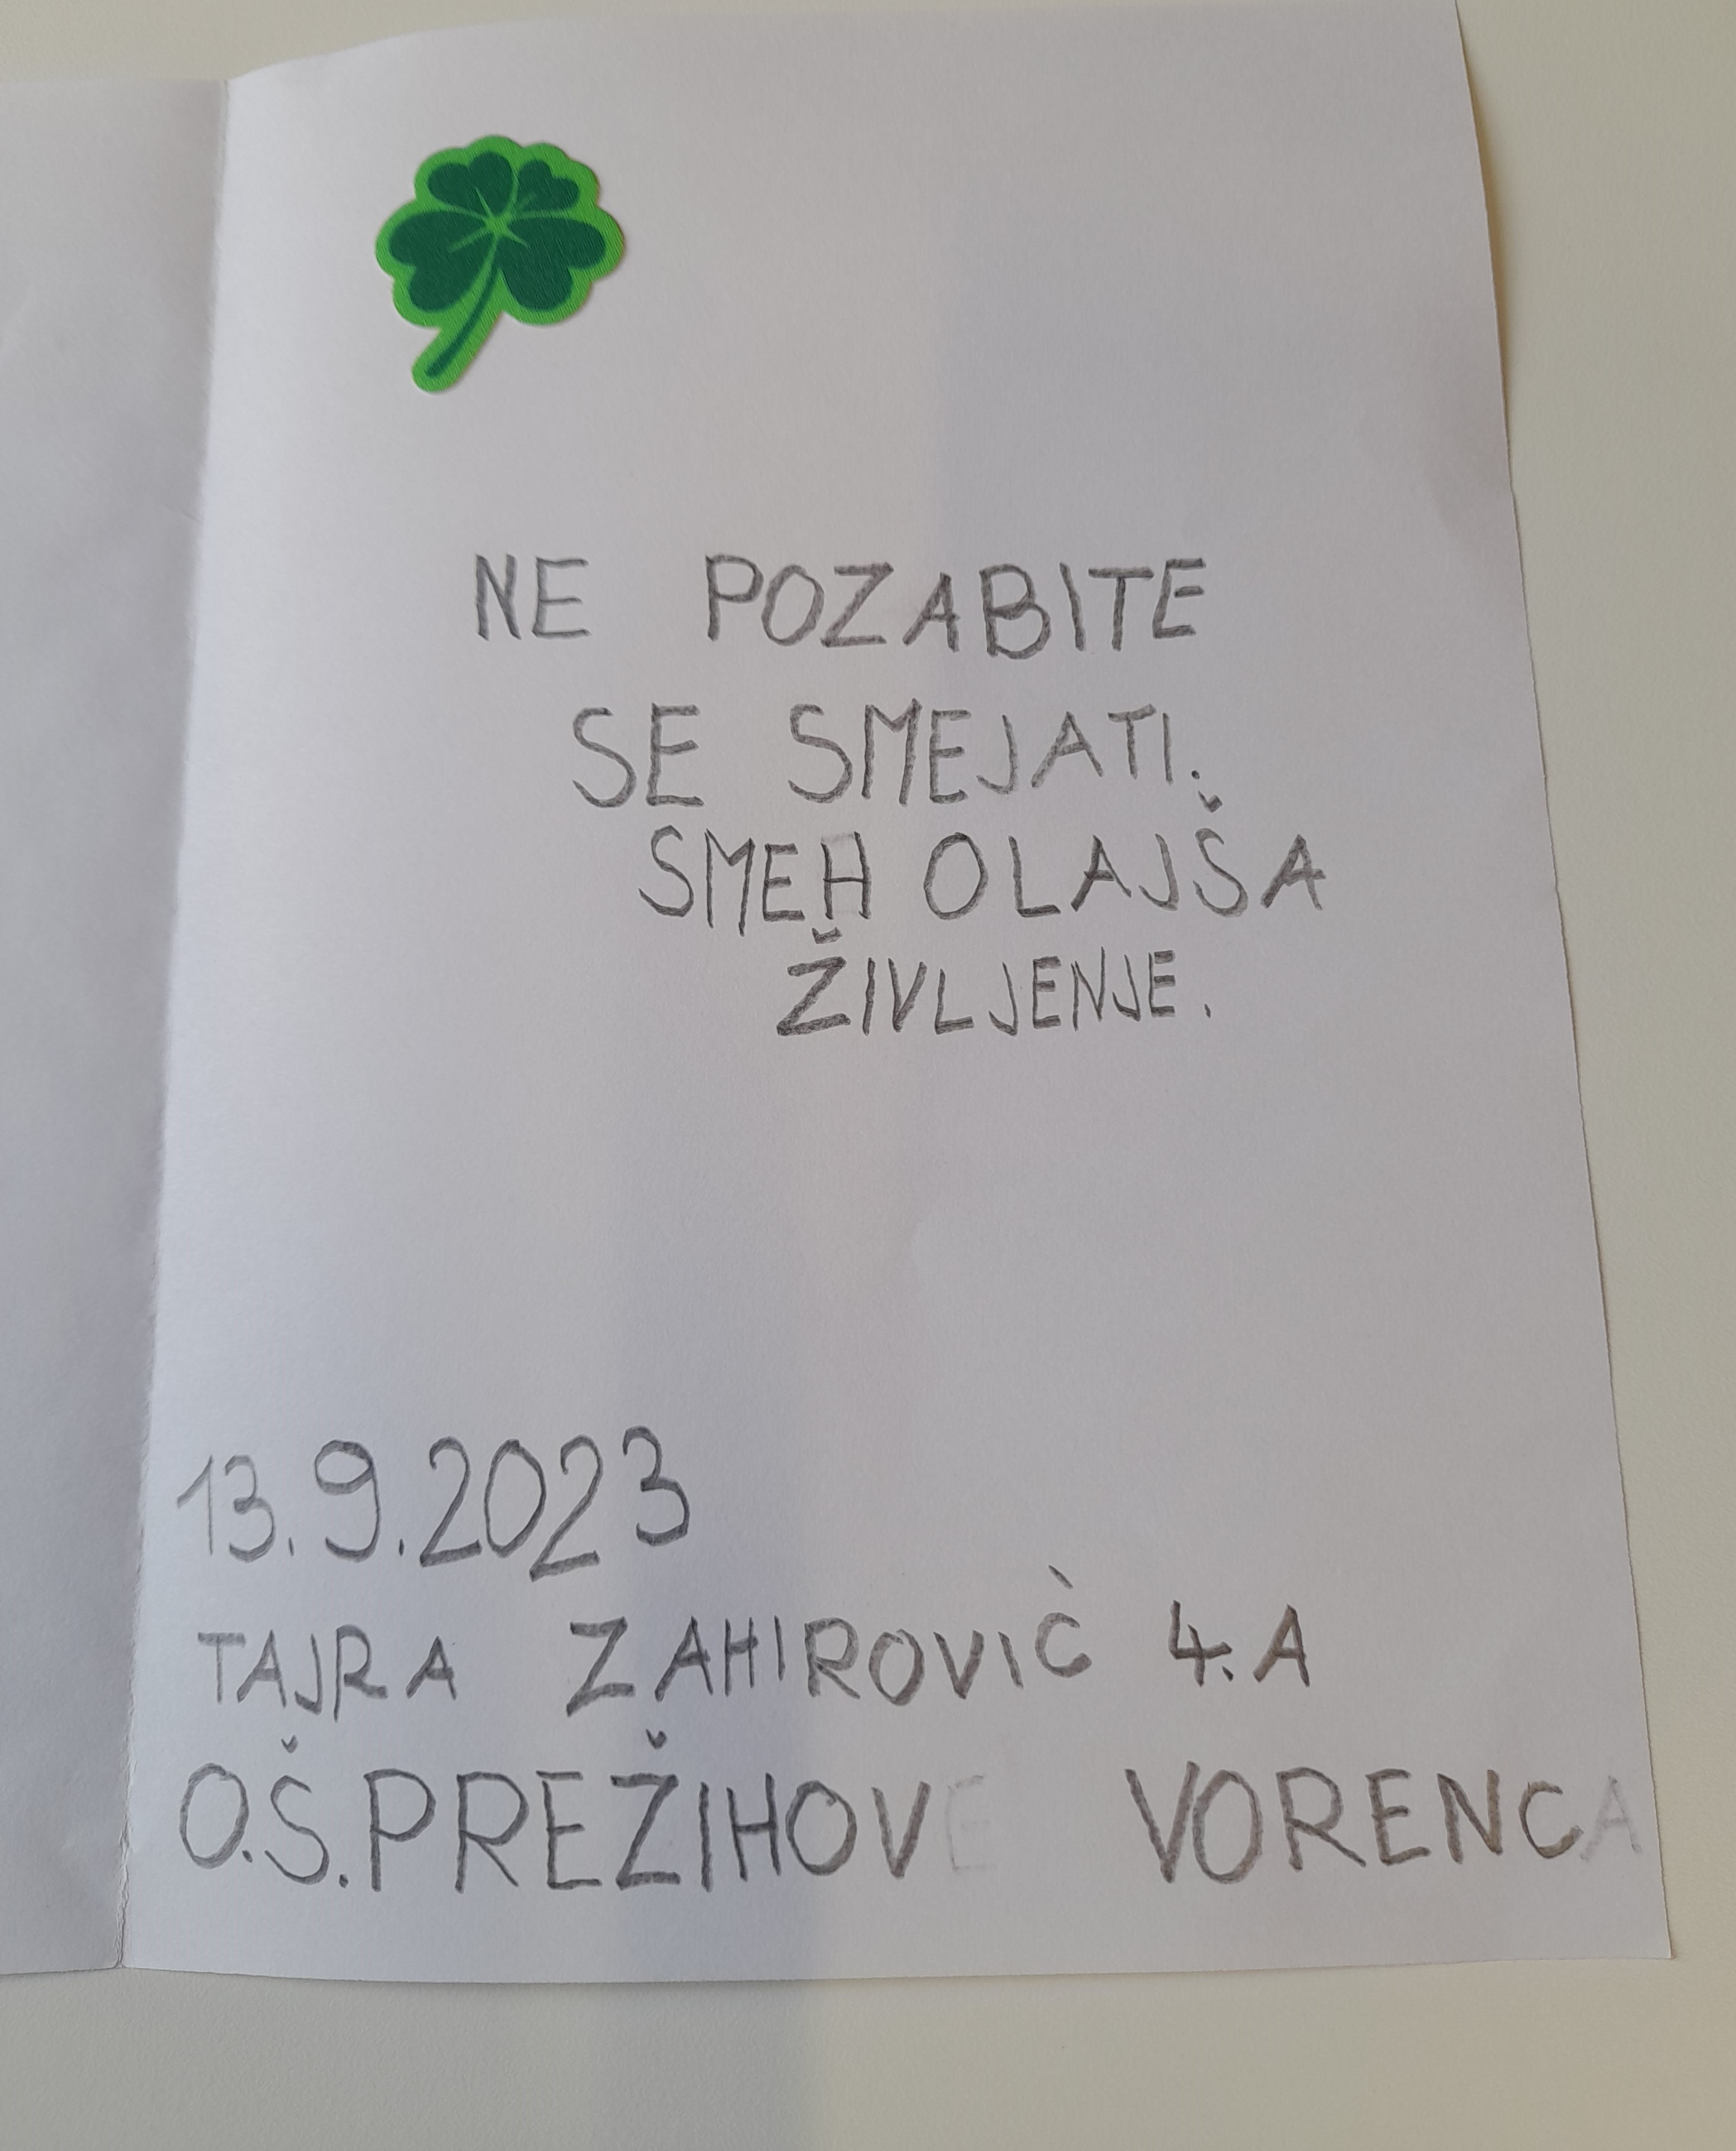 NE POZABITE
SE SMEJATI.
SMEH OLAJŠA
ŽIVLJENJE.
13.9.2023
TAJRA ZAHIROVIĆ 4.A
O.Š.PREŽIHOVE VORENCA